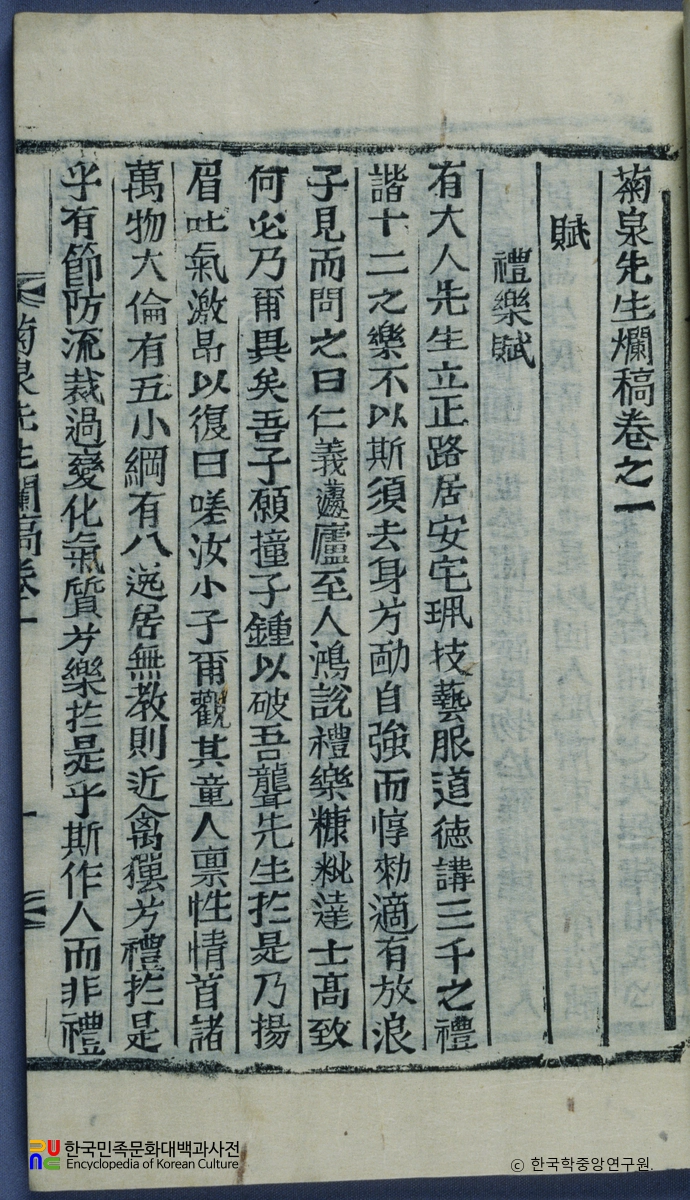 菊泉先生爛稿卷之一
賦
禮樂賦
有大人先生立正路居安宅珮技藝服道德講三千之禮
諧十二之樂不以斯須去身方勔自強而惇勑適有放浪
子見而問之曰仁義蘧廬至人鴻說禮樂糠粃達士高致
何必乃爾異矣吾子願撞子鍾以破吾聾先生扵是乃揚
眉吐氣激昻以復曰嗟汝小子爾觀其童人禀性情首諸
萬物大倫有五小綱有八逸居無教則近禽獸方禮扵是
乎有節防流裁過變化氣質方樂扵是乎斯作人而非禮
菊泉先生爛稿卷一
一
한국민족문화대백과사전
Encyclopedia of Korean Culture
© 한국학중앙연구원.